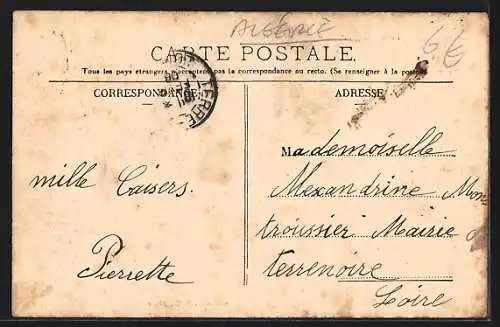 ALGÉRIE
6 €
CARTE POSTALE.
Tous les pays étrangers n'acceptent pas la correspondance au recto. (Se renseigner à la poste)
CORRESPONDANCE
ADRESSE
TERRE
Mademoiselle
mille baisers.
Alexandrine Mon
troussier Mairie d
Pierrette
terrenoire
Loire